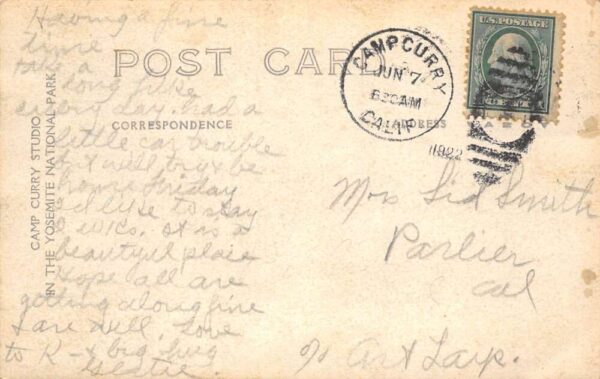 Having a fine
time
take a
long hike
every day. had a
little car trouble
but will try & be
home Friday
I'd like to stay
6 wks. It is a
beautiful place
Hope all are
getting along fine
& are well. Love
to K - & big hug
POST CARD
CORRESPONDENCE
ADDRESS
CAMP CURRY STUDIO
IN THE YOSEMITE NATIONAL PARK
CAMP CURRY
JUN 7
630AM
CALIF
1922
U.S. POSTAGE
Mrs Sid Smith
Parlier
Cal
% Art Larp.